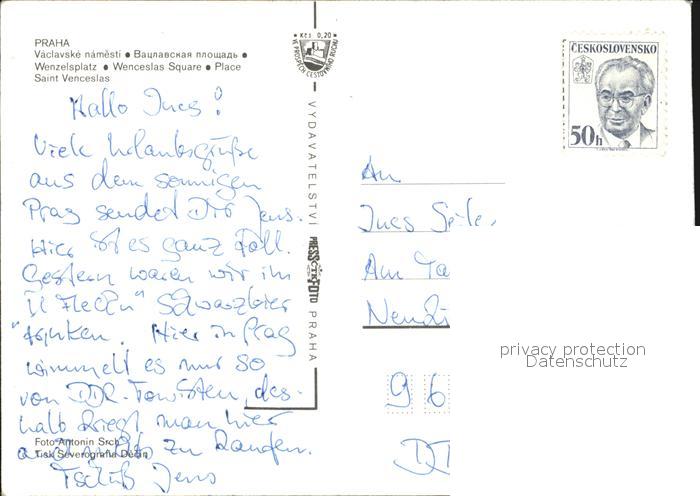 PRAHA
Václavské náměstí ● Вацлавская площадь ●
Wenzelsplatz ● Wenceslas Square ● Place
Saint Venceslas
Kčs 0,20
VE PROSPĚCH CESTOVNÍHO RUCHU
ČESKOSLOVENSKO
50h
Hallo Ines!
Viele Urlaubsgrüße
aus dem sonnigen
Prag sendet Dir Jens.
Hier ist es ganz toll.
Gestern waren wir im
"U Fleků" Schwarzbier
trinken. Hier in Prag
wimmelt es nur so
von DDR-Touristen, des-
halb kriegt man hier
zu kaufen.
Tschüß Jens
VYDAVATELSTVÍ PRESSFOTO PRAHA
An
Ines
Am Ta
96
Foto Antonín Srch
Tisk Severografia Děčín
privacy protection
Datenschutz